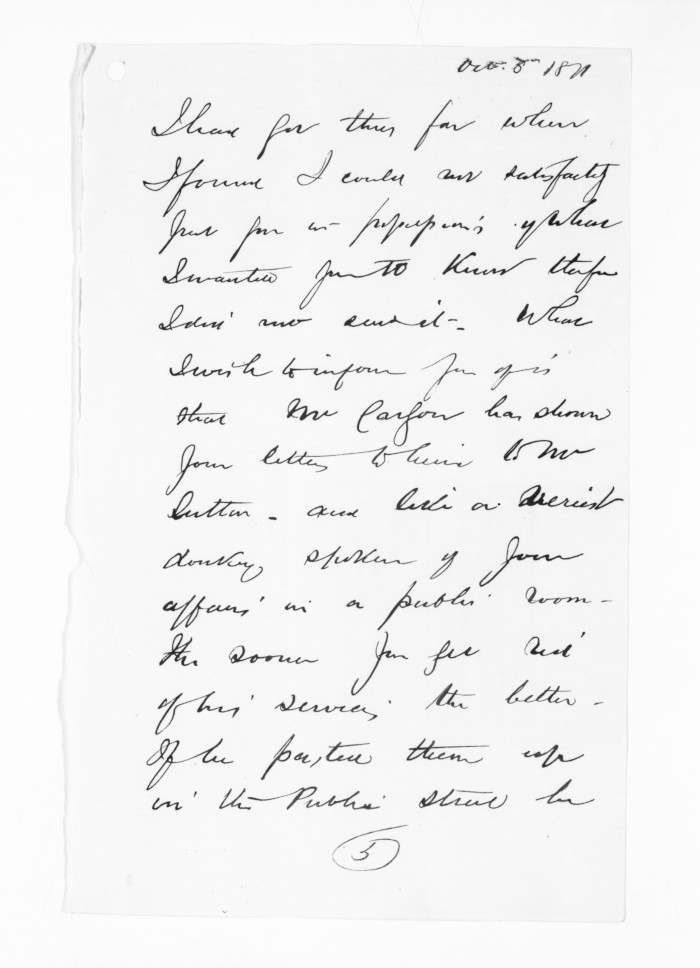 Oct. 5th 1871
I have got thus far when
I found I could not satisfactly
put you in of what
I wanted you to Know therefore
I did not send it - What
I wish to inform you of is
that Mr has shown
your letters to him to Mr
Sutton - and like a veriest
donkey, spoken of your
affairs in a public room -
the sooner you get rid
of his services the better -
If he posted them up
in the Public street he
5